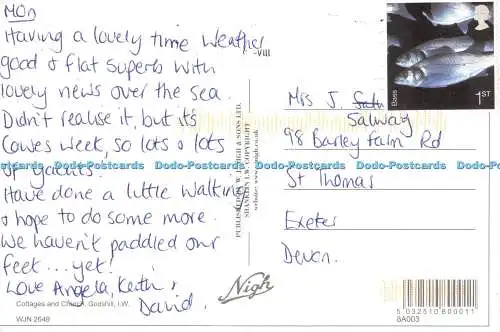 Mon
Having a lovely time Weather
good & flat superb with
lovely news over the sea.
Didn't realise it, but its
Cowes Week, so lots & lots
of yachts.
Have done a little walking
& hope to do some more.
We haven't paddled our
feet... yet!
Love Angela, Keith &
David.
Cottages and Church, Godshill, I.W.
WJN 2549
-VIII
PUBLISHED BY W.J. NIGH & SONS LTD.
SHANKLIN I.W. COPYRIGHT
www.nigh.co.uk
Nigh
Bass
1ST
Mrs J. Smith
Salway
98 Barley Farm Rd
St Thomas
Exeter
Devon.
5 032510 800011
8A003
Dodo-Postcards Dodo-Postcards Dodo-Postcards Dodo-Postcards Dodo-Postcards